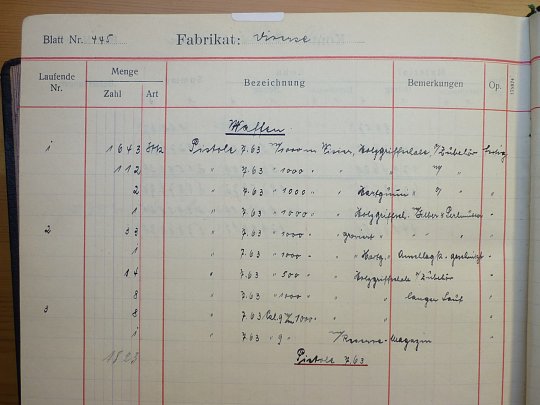 Blatt Nr. 445 Fabrikat: Diverse
Laufende Nr. Menge Zahl Art Bezeichnung Bemerkungen Op.
Waffen.
1 1643 Stk Pistole 7.63 m/1000 m Visier, Holzgriffschale, m/Zubehör
112 " 7.63 " 1000 " " " "/
2 " 7.63 " 1000 " " Hartgummi " "/ "
1 " 7.63 " 1000 " " Holzgriffsch. m/Silber & Perlmutter "
2 33 " 7.63 " 1000 " graviert " "
1 " 7.63 " 1000 " " Hartg. " Anschlag K. geschnitzt "
14 " 7.63 " 500 " " Holzgriffschale m/Zubehör "
8 " 7.63 " 1000 " " langer Lauf "
3 8 " 7.63 Cal. 9 1000 "
1 " 7.63 " 9 " m/Reserve-Magazin "
1823 Pistole 7.63